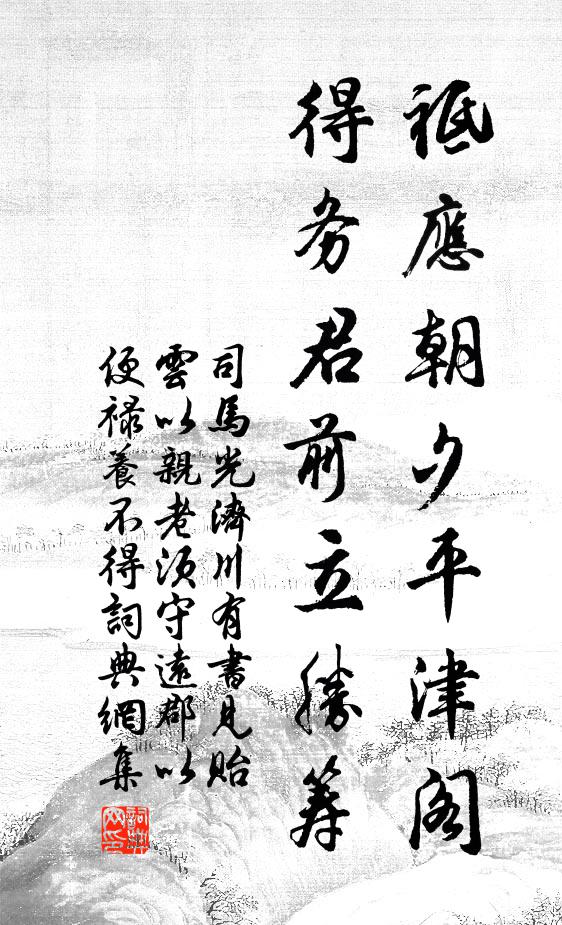 祗應朝夕平津閣
得務君前立勝籌
司馬光濟川有書見貽
雲以親老須守遠郡以
便祿養不得詞典網集